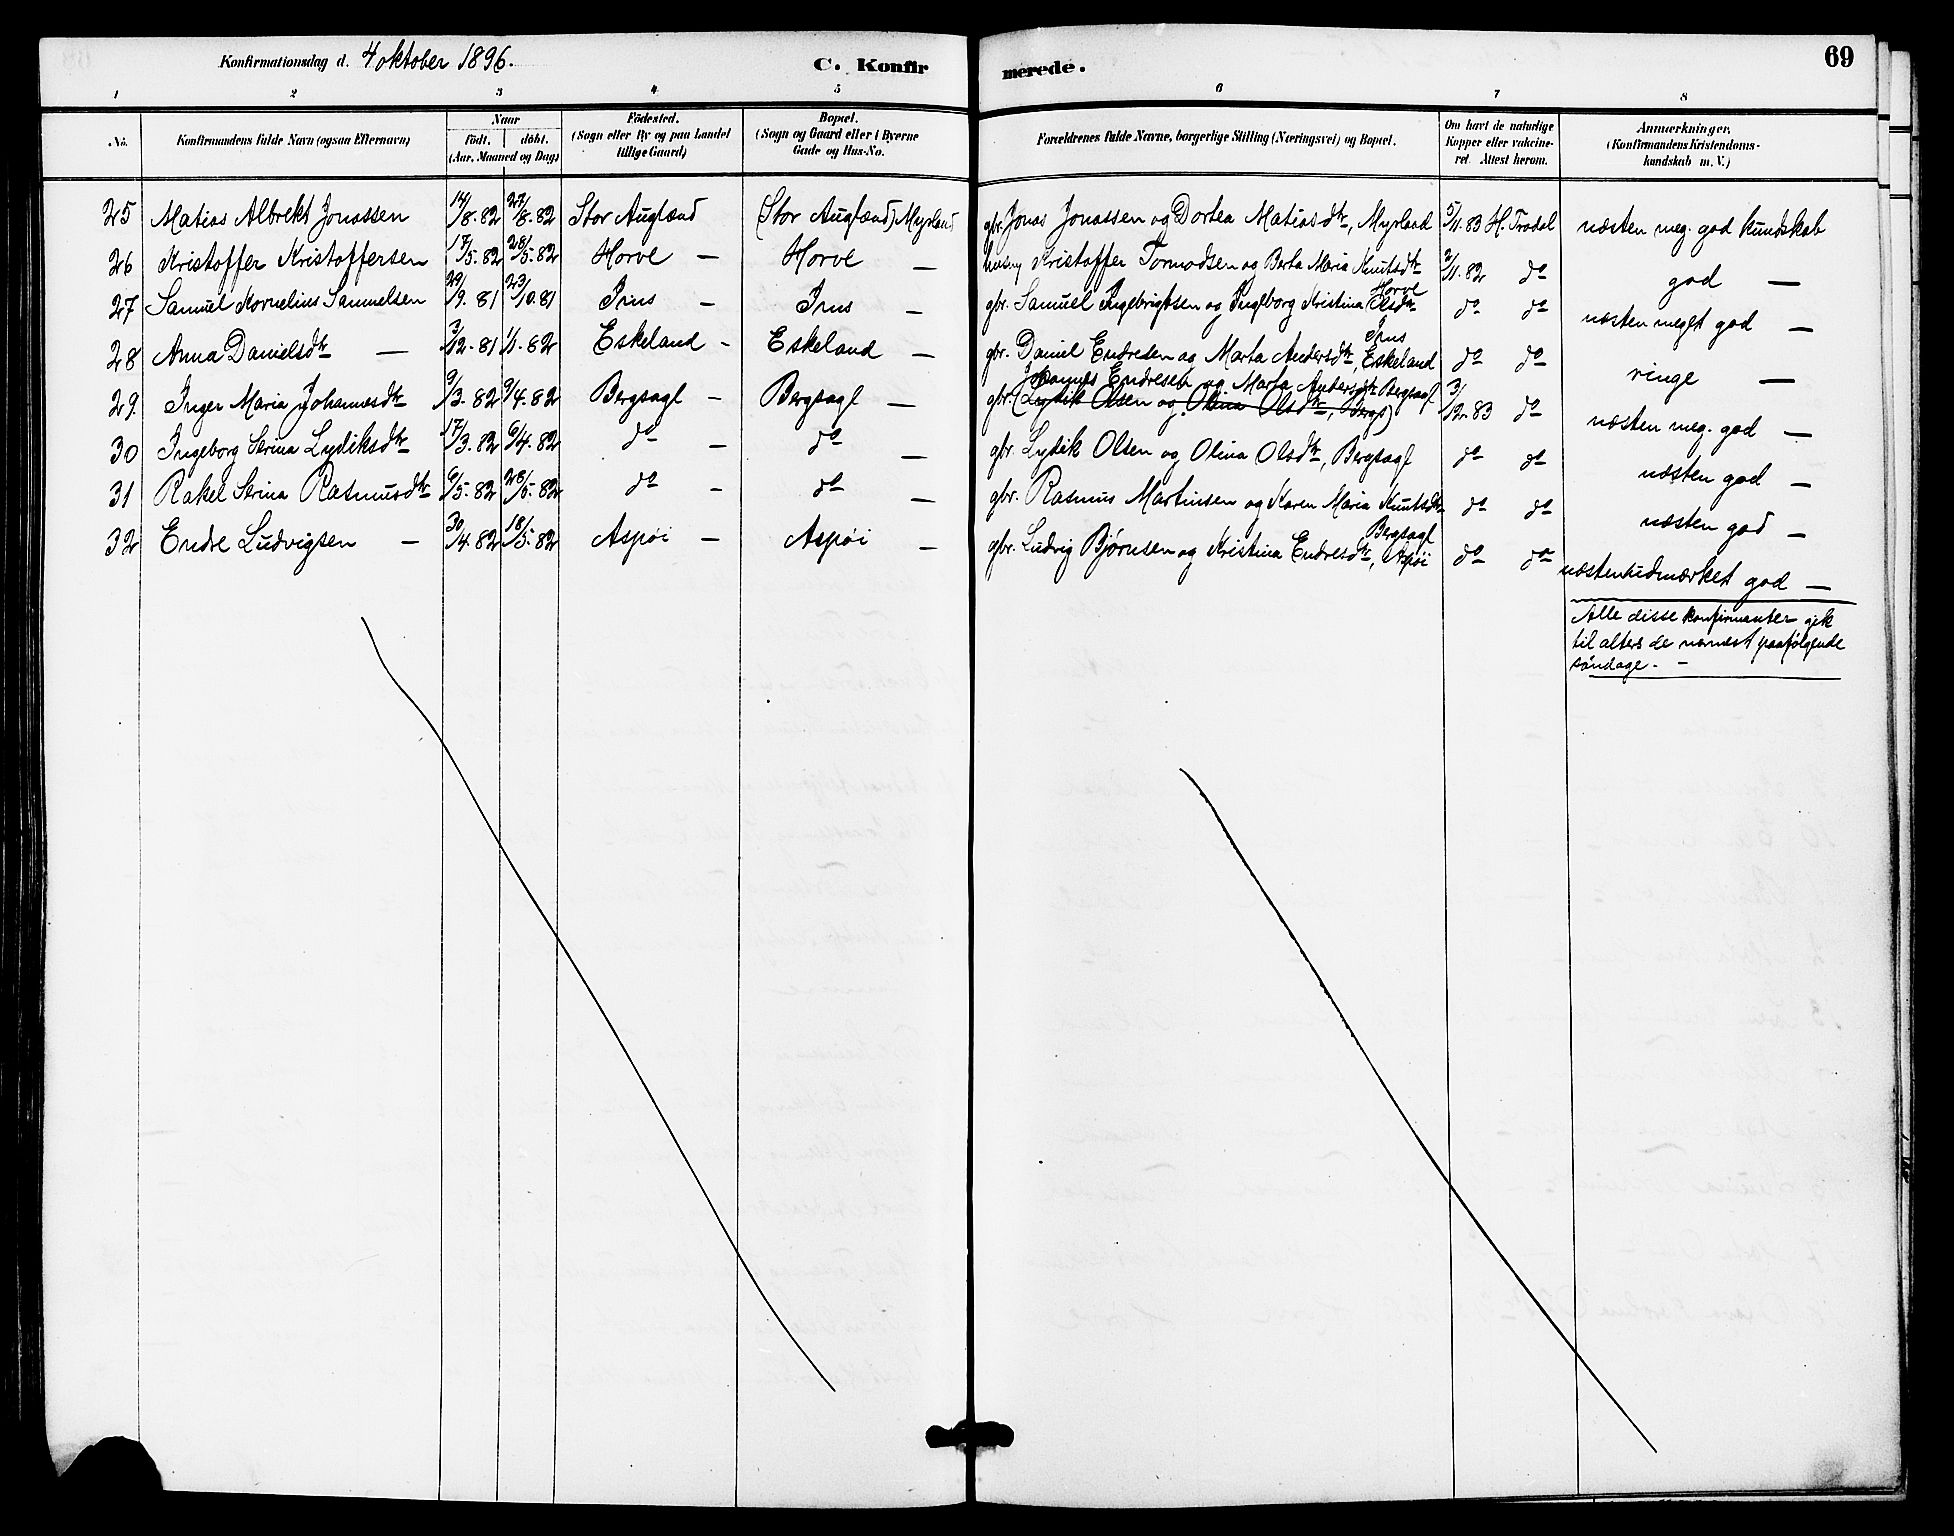 Konfirmationsdag d. 4 oktober 1896.
C. Konfirmerede.
69
1 2 3 4 5 6 7 8
No.
Konfirmandens fulde Navn (ogsaa Efternavn)
Naar
født. døbt.
(Aar, Maaned og Dag)
Fødested.
(Sogn eller By og paa Landet
tillige Gaard)
Bopæl.
(Sogn og Gaard eller i Byerne
Gade og Hus-No.
Forældrenes fulde Navne, borgerlige Stilling (Næringsvei) og Bopæl.
Om havt de naturlige
Kopper eller vakcine-
ret. Attest herom.
Anmærkninger.
(Konfirmandens Kristendoms-
kundskab m. V.)
25 Matias Albrekt Jonassen 14/8.82 27/8.82 Stor Augland (Stor Augland) Myrland gbr. Jonas Jonassen og Dortea Matiasdtr, Myrland 5/11.83 H. Tradal næsten meg. god kundskab
26 Kristoffer Kristoffersen 17/5.82 28/5.82 Horve — Horve — husm Kristoffer Tormodsen og Berta Maria Knutsdtr Horve 2/11.82 do god —
27 Samuel Kornelius Samuelsen 29/9.81 23/10.81 Irus — Irus — gbr. Samuel Ingebrigtsen og Ingeborg Kristina Olsdtr Irus do do næsten meget god —
28 Anna Danielsdtr — 3/12.81 1/1.82 Eskeland — Eskeland — gbr. Daniel Endresen og Marta Andersdtr, Eskeland do do ringe —
29 Inger Maria Johannesdtr 9/3.82 9/4.82 Bergsagl — Bergsagl — gbr. Johannes Endresen og Marta Andersdtr Bergsagl
(Lydik Olsen og Olina Olsdtr, Bergs) 3/12.83 do næsten meg. god —
30 Ingeborg Serina Lydiksdtr 17/3.82 6/4.82 do — do — gbr. Lydik Olsen og Olina Olsdtr, Bergsagl do do næsten god —
31 Rakel Serina Rasmusdtr 6/5.82 28/5.82 do — do — gbr. Rasmus Martinsen og Karen Maria Knutsdtr Bergsagl do do næsten god —
32 Endre Ludvigsen — 30/4.82 18/5.82 Aspøi — Aspøi — gbr. Ludvig Bjørnsen og Kristina Endresdtr, Aspøi do do næsten udmærket god —
Alle disse konfirmanter gik
til alters de nærmest paafølgende
søndage. —